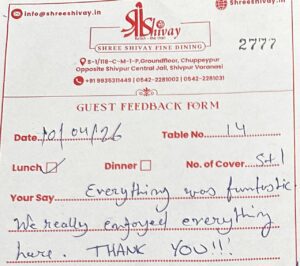 info@shreeshivay.in
@shreeshivay.in
Shivay
SHREE SHIVAY FINE DINING
2777
S-1/118-C-M-1-P, Groundfloor, Chuppeypur
Opposite Shivpur Central Jail, Shivpur Varanasi
+91 9935311449 | 0542-2281002 | 0542-2281031
GUEST FEEDBACK FORM
Date 10/04/26 Table No. 14
Lunch Dinner No. of Cover 5+1
Your Say Everything was funtastic
We really enjoyed everything
here. THANK YOU!!!